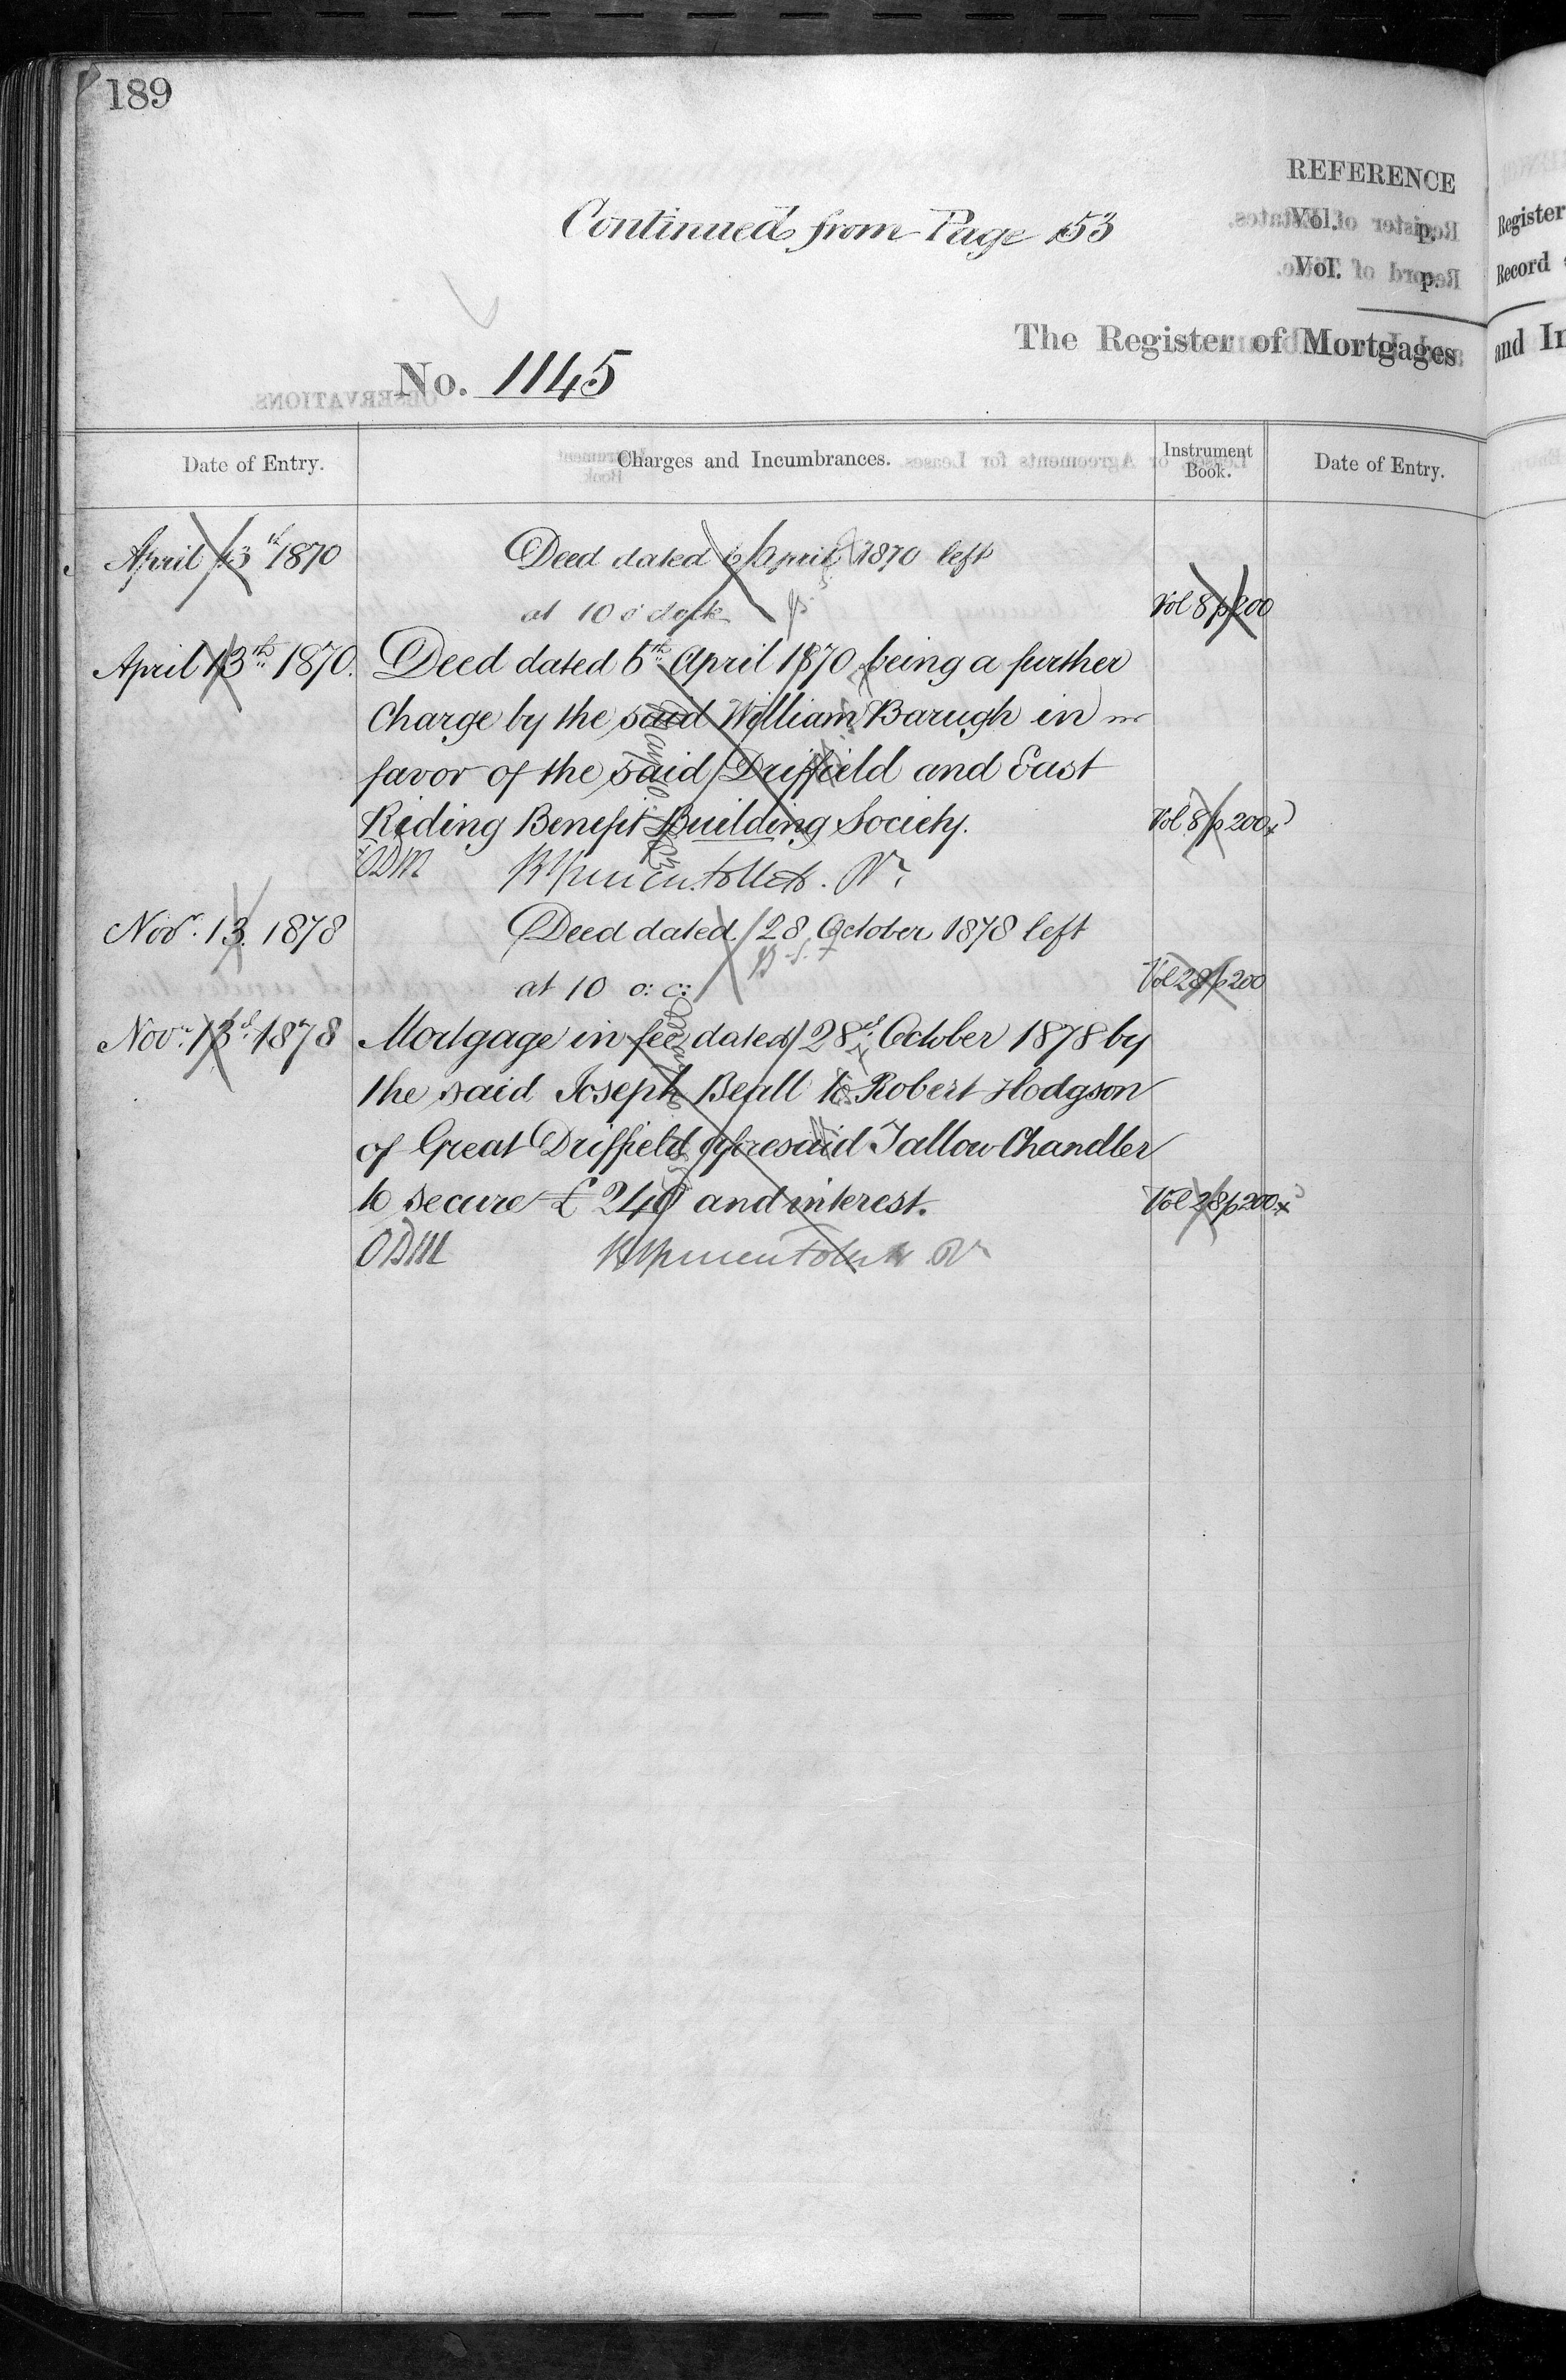 189
REFERENCE
Continued from Page 153
Vol. p.
Vol. p.
Register
Record
The Register of Mortgages and In
No. 1145
Date of Entry. Charges and Incumbrances. Instrument Book. Date of Entry.
April 13th 1870 Deed dated 6 April 1870 left
at 10 o'clock Vol 8 p 200
April 13th 1870. Deed dated 6th April 1870 being a further
Charge by the said William Barugh in
favor of the said Driffield and East
Riding Benefit Building Society. Vol 8 p 200
ODM
Novr. 13. 1878 Deed dated 28 October 1878 left
at 10 o: c: Vol 28 p 200
Novr. 13th 1878 Mortgage in fee dated 28th October 1878 by
the said Joseph Beall to Robert Hodgson
of Great Driffield aforesaid Tallow Chandler
to secure £240 and interest. Vol 28 p 200
ODM